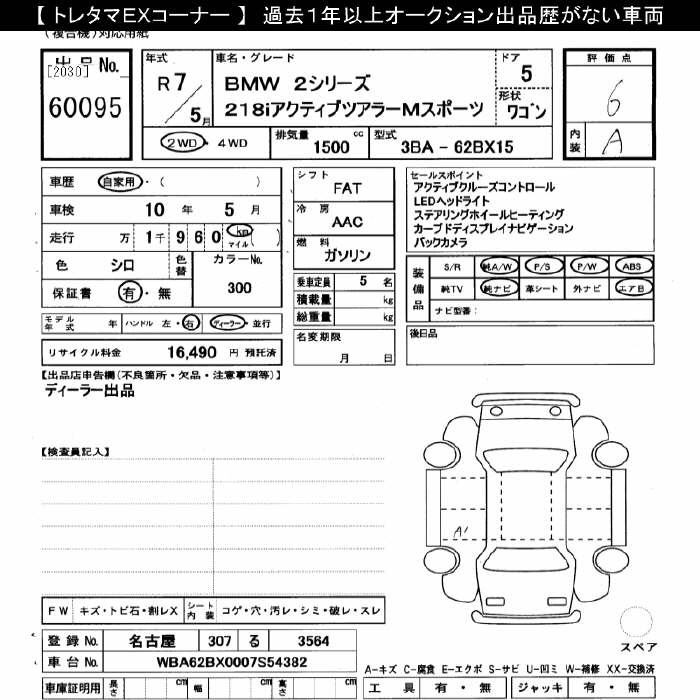 【 トレタマEXコーナー 】 過去1年以上オークション出品歴がない車両
(複合機)対応用紙
出品 No.
[2030]
60095
年式
R 7 / 5 月
車名・グレード
BMW 2シリーズ
218iアクティブツアラーMスポーツ
ドア
5
形状
ワゴン
評価点
6
内装
A
2WD ・ 4WD
排気量 1500 cc
型式 3BA - 62BX15
車歴 自家用・( )
車検 10 年 5 月
走行 万 1千 9 6 0 km マイル ( )
色 シロ
色替
カラーNo.
300
保証書 有・無
モデル年式 年
ハンドル 左・右
ディーラー・並行
リサイクル料金 16,490 円 預託済
シフト
FAT
冷房
AAC
燃料
ガソリン
乗車定員 5 名
積載量 kg
総重量 kg
名変期限
月 日
セールスポイント
アクティブクルーズコントロール
LEDヘッドライト
ステアリングホイールヒーティング
カーブドディスプレイナビゲーション
バックカメラ
装備品
S/R 純A/W P/S P/W ABS
純TV 純ナビ 革シート 外ナビ エアB
ナビ型番:
後日品
【出品店申告欄(不良箇所・欠品・注意事項等)】
ディーラー出品
【検査員記入】
A1
FW キズ・トビ石・割レX
シート内装 コゲ・穴・汚レ・シミ・破レ・スレ
スペア
登録 No. 名古屋 307 る 3564
車台 No. WBA62BX0007S54382
車庫証明用 長さ cm 幅 cm 高さ cm
A-キズ C-腐食 E-エクボ S-サビ U-凹ミ W-補修 XX-交換済
工具 有・無 ジャッキ 有・無